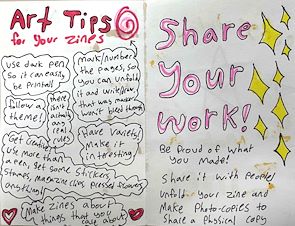 Art Tips
for your zines
use dark pen
so it can easily
be printed!
mark/number
the pages, so
you can unfold
it and write/draw
that way marker
won't bleed though
follow a
theme!
there
isn't
actually
any
real
rules
Have variety,
make it
interesting!
Get creative!
use more than
a pen, get some stickers,
stamps, magazine clips, pressed flowers
anything!
Make zines about
things that you
care about
Share
Your
Work!
Be Proud of what
You Made!
Share it with people/
Unfold your zine and
Make Photo-copies to
Share a Physical copy